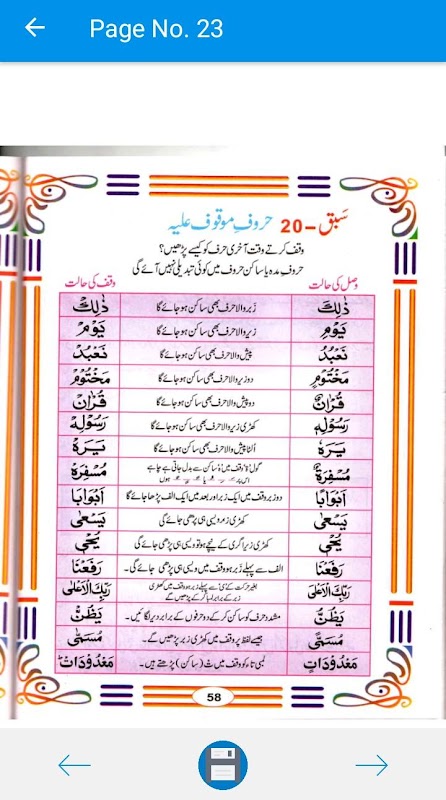 Page No. 23
سَبق - 20 حروفِ موقوف علیہ
وقف کرتے وقت آخری حرف کو کیسے پڑھیں؟
حروفِ مدہ یا ساکن حروف میں کوئی تبدیلی نہیں آئے گی
وصل کی حالت وقف کی حالت
ذٰلِكَ زَبر والا حرف بھی ساکن ہو جائے گا ذٰلِكْ
يَوْمِ زیر والا حرف بھی ساکن ہو جائے گا يَوْمْ
نَعْبُدُ پیش والا حرف بھی ساکن ہو جائے گا نَعْبُدْ
مَخْتُوْمٍ دو زیر والا حرف بھی ساکن ہو جائے گا مَخْتُوْمْ
قُرْاٰنٌ دو پیش والا حرف بھی ساکن ہو جائے گا قُرْاٰنْ
رَسُوْلِهٖ کھڑی زیر والا حرف بھی ساکن ہو جائے گا رَسُوْلِهْ
يَرَهٗ اُلٹا پیش والا حرف بھی ساکن ہو جائے گا يَرَهْ
مُسْفِرَةٌ گول ۃ وقف میں ہ ساکن سے بدل جاتی ہے چاہے مُسْفِرَهْ
اَبْوَابًا دو زبر وقف میں ایک زبر اور بعد میں ایک الف پڑھا جائے گا اَبْوَابَا
يَسْعٰى کھڑی زبر ویسی ہی پڑھی جائے گی يَسْعٰى
يُحْيٖ کھڑی زیر اگر ی کے نیچے ہو تو ویسی ہی پڑھی جائے گی يُحْيٖ
رَفَعْنَا الف سے پہلے زَبر ہو وقف میں ویسی ہی پڑھی جائے گی۔ رَفَعْنَا
رَبِّكَ الْاَعْلَى بغیر حرکت کے ’ی‘ سے پہلے زَبر ہو وقف میں کھڑی رَبِّكَ الْاَعْلٰى
زبر کے برابر لمبا کر کے پڑھیں گے
يَظُنُّ مشدد حرف کو ساکن کر کے دو حرفوں کے برابر دیر لگائیں۔ يَظُنّْ
مُسَمًّى جیسے لفظ پر وقف میں کھڑی زبر پڑھیں گے۔ مُسَمّٰى
مَعْدُوْدَاتٍ لمبی تاء کو وقف میں ث (ساکن) پڑھتے ہیں۔ مَعْدُوْدَاتْ ط
58